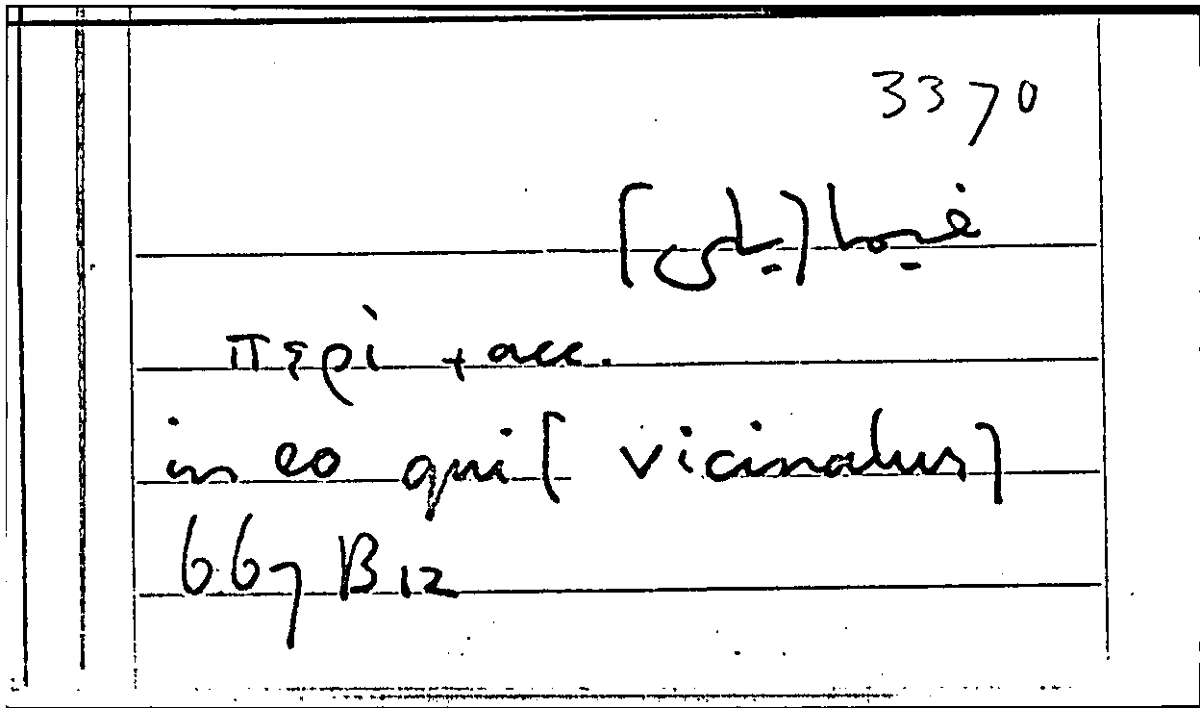 3370
فيما [يلى]
περὶ + acc.
in eo qui [ vicinatur ]
667 B 12